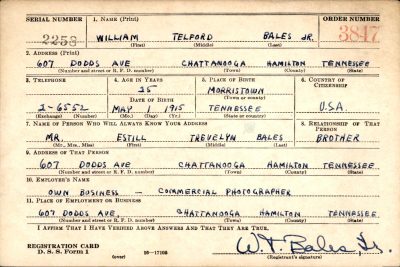 SERIAL NUMBER 1. NAME (Print) ORDER NUMBER
2258 WILLIAM TELFORD BALES JR. 3847
(First) (Middle) (Last)
2. ADDRESS (Print)
607 DODDS AVE CHATTANOOGA HAMILTON TENNESSEE
(Number and street or R. F. D. number) (Town) (County) (State)
3. TELEPHONE 4. AGE IN YEARS 5. PLACE OF BIRTH 6. COUNTRY OF CITIZENSHIP
25 MORRISTOWN
DATE OF BIRTH (Town or county)
2-6552 MAY 1 1915 TENNESSEE U.S.A.
(Exchange) (Number) (Mo.) (Day) (Yr.) (State or country)
7. NAME OF PERSON WHO WILL ALWAYS KNOW YOUR ADDRESS 8. RELATIONSHIP OF THAT PERSON
MR. ESTILL TREVELYN BALES BROTHER
(Mr., Mrs., Miss) (First) (Middle) (Last)
9. ADDRESS OF THAT PERSON
607 DODDS AVE CHATTANOOGA HAMILTON TENNESSEE
(Number and street or R. F. D. number) (Town) (County) (State)
10. EMPLOYER'S NAME
OWN BUSINESS — COMMERCIAL PHOTOGRAPHER
11. PLACE OF EMPLOYMENT OR BUSINESS
607 DODDS AVE CHATTANOOGA HAMILTON TENNESSEE
(Number and street or R. F. D. number) (Town) (County) (State)
I AFFIRM THAT I HAVE VERIFIED ABOVE ANSWERS AND THAT THEY ARE TRUE.
REGISTRATION CARD
D. S. S. Form 1 16—17105 (over) W.T. Bales, Jr.
(Registrant's signature)